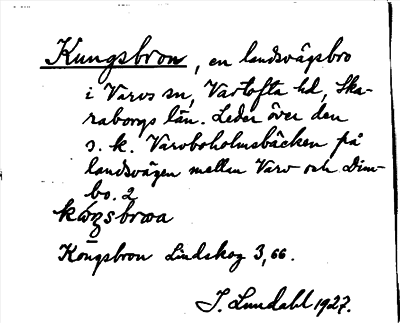 Kungsbron, en landsvägsbro
i Varvs sn, Vartofta hd, Ska-
raborgs län. Leder över den
s. k. Varvboholmsbäcken på
landsvägen mellan Varv och Dim-
bo. 2
Kongsbron Lindskog 3,66.
J. Lundahl 1927.